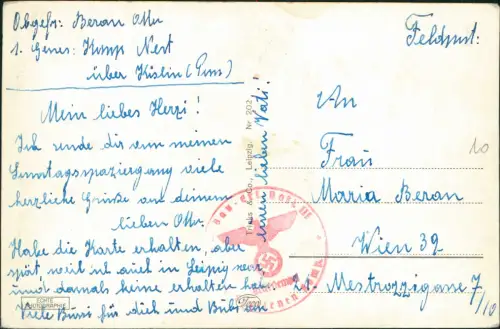 Obgefr: Beran Otto
1. Genes: Komp Nest
über Köslin (Pom)
Feldpost:
Mein liebes Herzi!
Ich sende dir von meinen
Sonntagsspaziergang viele
herzliche Grüße an deinem
lieben Otto
Habe die Karte erhalten, aber
spät, weil ich auch in Leipzig war
und damals keine erhalten habe
Viele Bussi für dich und Bubi von
einen lieben Vati!
Trinks & Co., Leipzig. Nr 202
An
Frau
Maria Beran
Wien 32
Mestrozzigasse 7/10
10
ECHTE
PHOTOGRAPHIE